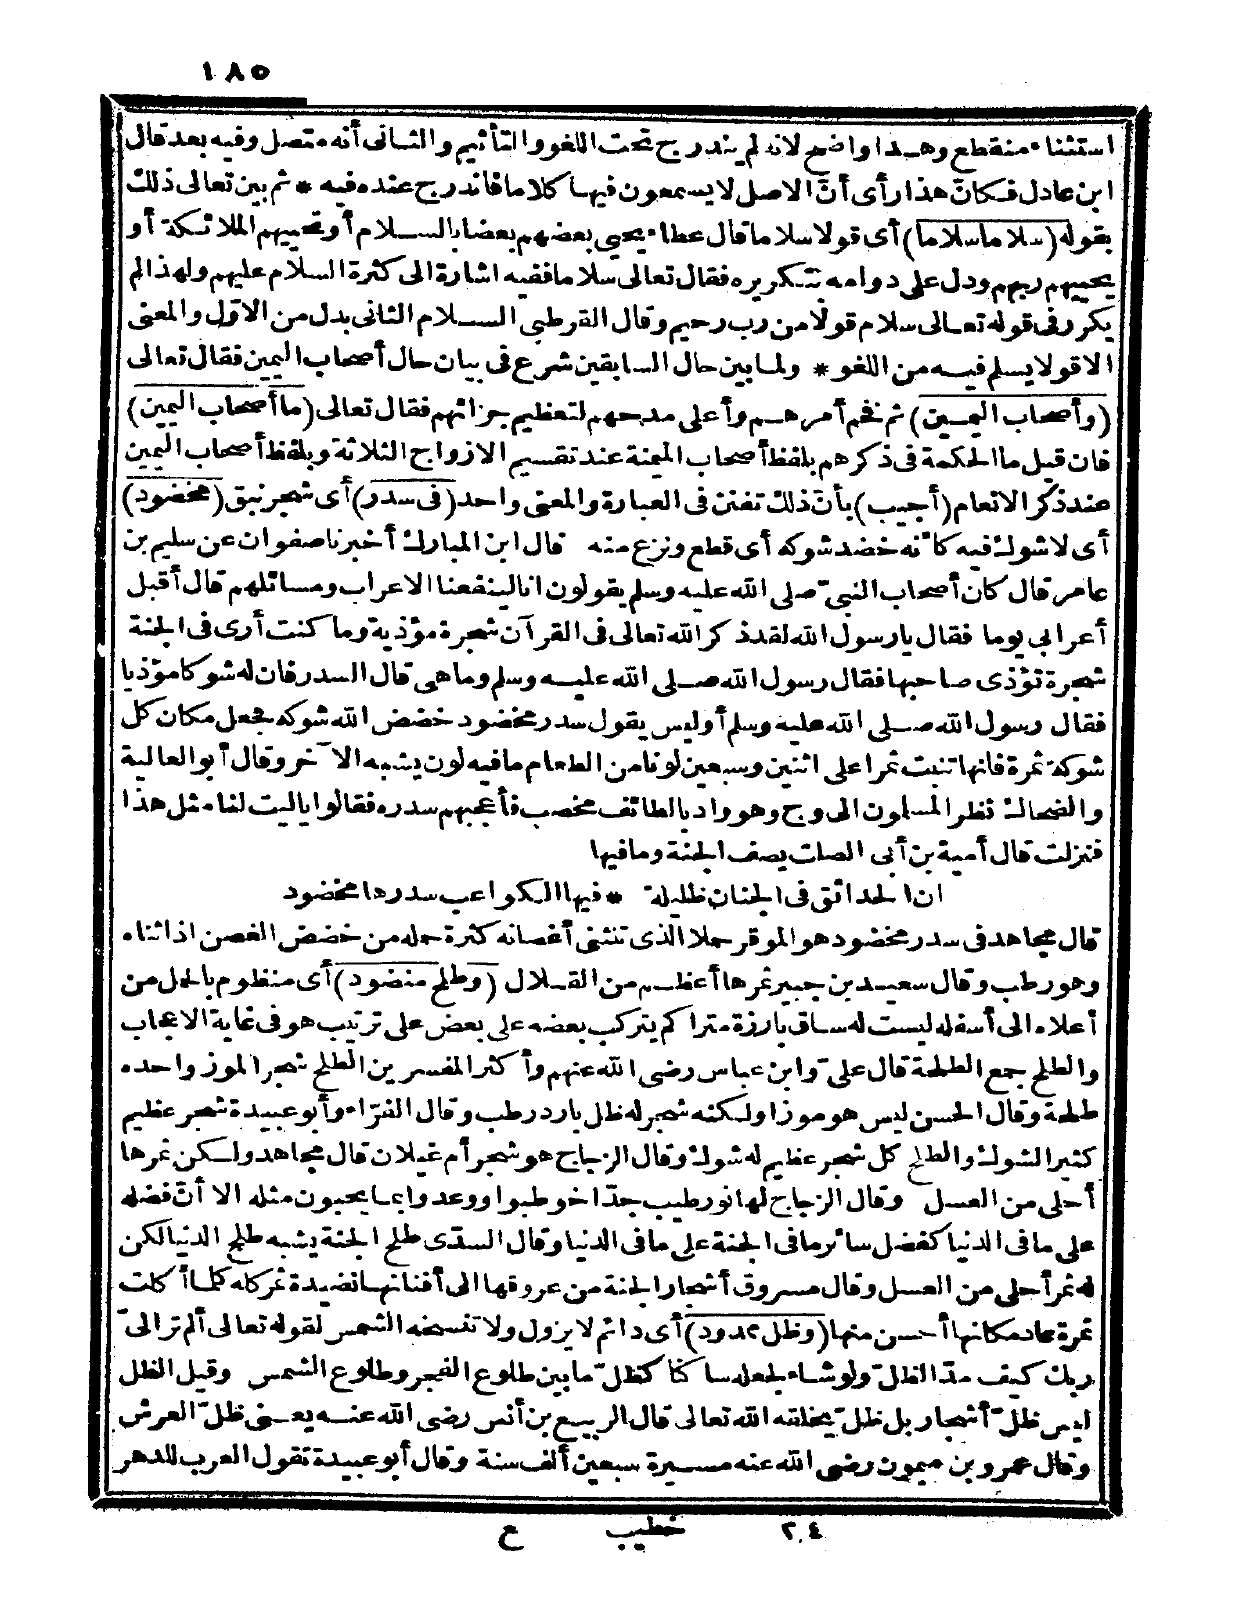 ١٨٥
استثناء منقطع وهذا واضح لانه لم يندرج تحت اللغو والتأثيم والثانى أنه متصل وفيه بعد قال
ابن عادل فكانّ هذا رأى أنّ الاصل لا يسمعون فيها كلاما فاندرج عنده فيه * ثم بين تعالى ذلك
بقوله (سلاما سلاما) أى قولا سلاما قال عطاء يحيى بعضهم بعضا بالسلام أو تحييهم الملائكة أو
يحييهم ربهم ودل على دوامه بتكريره فقال تعالى سلاما ففيه اشارة الى كثرة السلام عليهم ولهذا لم
يكرر فى قوله تعالى سلام قولا من رب رحيم وقال القرطبي السلام الثانى بدل من الاوّل والمعنى
الا قولا يسلم فيه من اللغو * ولما بين حال السابقين شرع فى بيان حال أصحاب اليمين فقال تعالى
(وأصحاب اليمين) ثم فخم أمرهم وأعلى مدحهم لتعظيم جزائهم فقال تعالى (ما أصحاب اليمين)
فان قيل ما الحكمة فى ذكرهم بلفظ أصحاب الميمنة عند تقسيم الازواج الثلاثة وبلفظ أصحاب اليمين
عند ذكر الانعام (أجيب) بأنّ ذلك تفنن فى العبارة والمعنى واحد (فى سدر) أى شجر نبق (مخضود)
أى لا شوك فيه كأنه خضد شوكه أى قطع ونزع منه قال ابن المبارك أخبرنا صفوان عن سليم بن
عامر قال كان أصحاب النبيّ صلى الله عليه وسلم يقولون انا لينفعنا الاعراب ومسائلهم قال أقبل
أعرابي يوما فقال يا رسول الله لقد ذكر الله تعالى فى القرآن شجرة مؤذية وما كنت أرى فى الجنة
شجرة تؤذى صاحبها فقال رسول الله صلى الله عليه وسلم وما هى قال السدر فان له شوكا مؤذيا
فقال رسول الله صلى الله عليه وسلم أوليس يقول سدر مخضود خضض الله شوكه فجعل مكان كل
شوكة ثمرة فانها تنبت ثمرا على اثنين وسبعين لونا من الطعام ما فيه لون يشبه الآخر وقال أبو العالية
والضحاك نظر المسلمون الى وج وهو واد بالطائف مخصب فأعجبهم سدره فقالوا ياليت لنا مثل هذا
فنزلت قال أمية بن أبى الصلت يصف الجنة وما فيها
ان الحدائق فى الجنان ظليلة * فيها الكواعب سدرها مخضود
قال مجاهد فى سدر مخضود هو الموقر حملا الذى تنثنى أغصانه كثرة حمله من خضض الغصن اذا ثناه
وهو رطب وقال سعيد بن جبير ثمرها أعظم من القلال (وطلح منضود) أى منظوم بالحمل من
أعلاه الى أسفله ليست له ساق بارزة متراكم يتركب بعضه على بعض على ترتيب هو فى غاية الاعجاب
والطلح جمع الطلحة قال علىّ وابن عباس رضى الله عنهم وأكثر المفسرين الطلح شجر الموز واحده
طلحة وقال الحسن ليس هو موزا ولكنه شجر له ظل بارد رطب وقال الفرّاء وأبو عبيدة شجر عظيم
كثير الشوك والطلح كل شجر عظيم له شوك وقال الزجاج هو شجر أم غيلان قال مجاهد ولكن ثمرها
أحلى من العسل وقال الزجاج لها نور طيب جدّا خوطبوا ووعدوا بما يحبون مثله الا أنّ فضله
على ما فى الدنيا كفضل سائر ما فى الجنة على ما فى الدنيا وقال السدّى طلح الجنة يشبه طلح الدنيا لكن
له ثمر أحلى من العسل وقال مسروق أشجار الجنة من عروقها الى أفنانها نضيدة ثمر كله كلما أكلت
ثمرة عاد مكانها أحسن منها (وظل ممدود) أى دائم لا يزول ولا تنسخه الشمس لقوله تعالى ألم تر الىّ
ربك كيف مدّ الظلّ ولو شاء لجعله ساكنا كظلّ ما بين طلوع الفجر وطلوع الشمس وقيل الظل
ليس ظلّ أشجار بل ظلّ يخلقه الله تعالى قال الربيع بن أنس رضى الله عنه يعنى ظلّ العرش
وقال عمرو بن ميمون رضى الله عنه مسيرة سبعين ألف سنة وقال أبو عبيدة تقول العرب للدهر
٢٤ خطيب ع